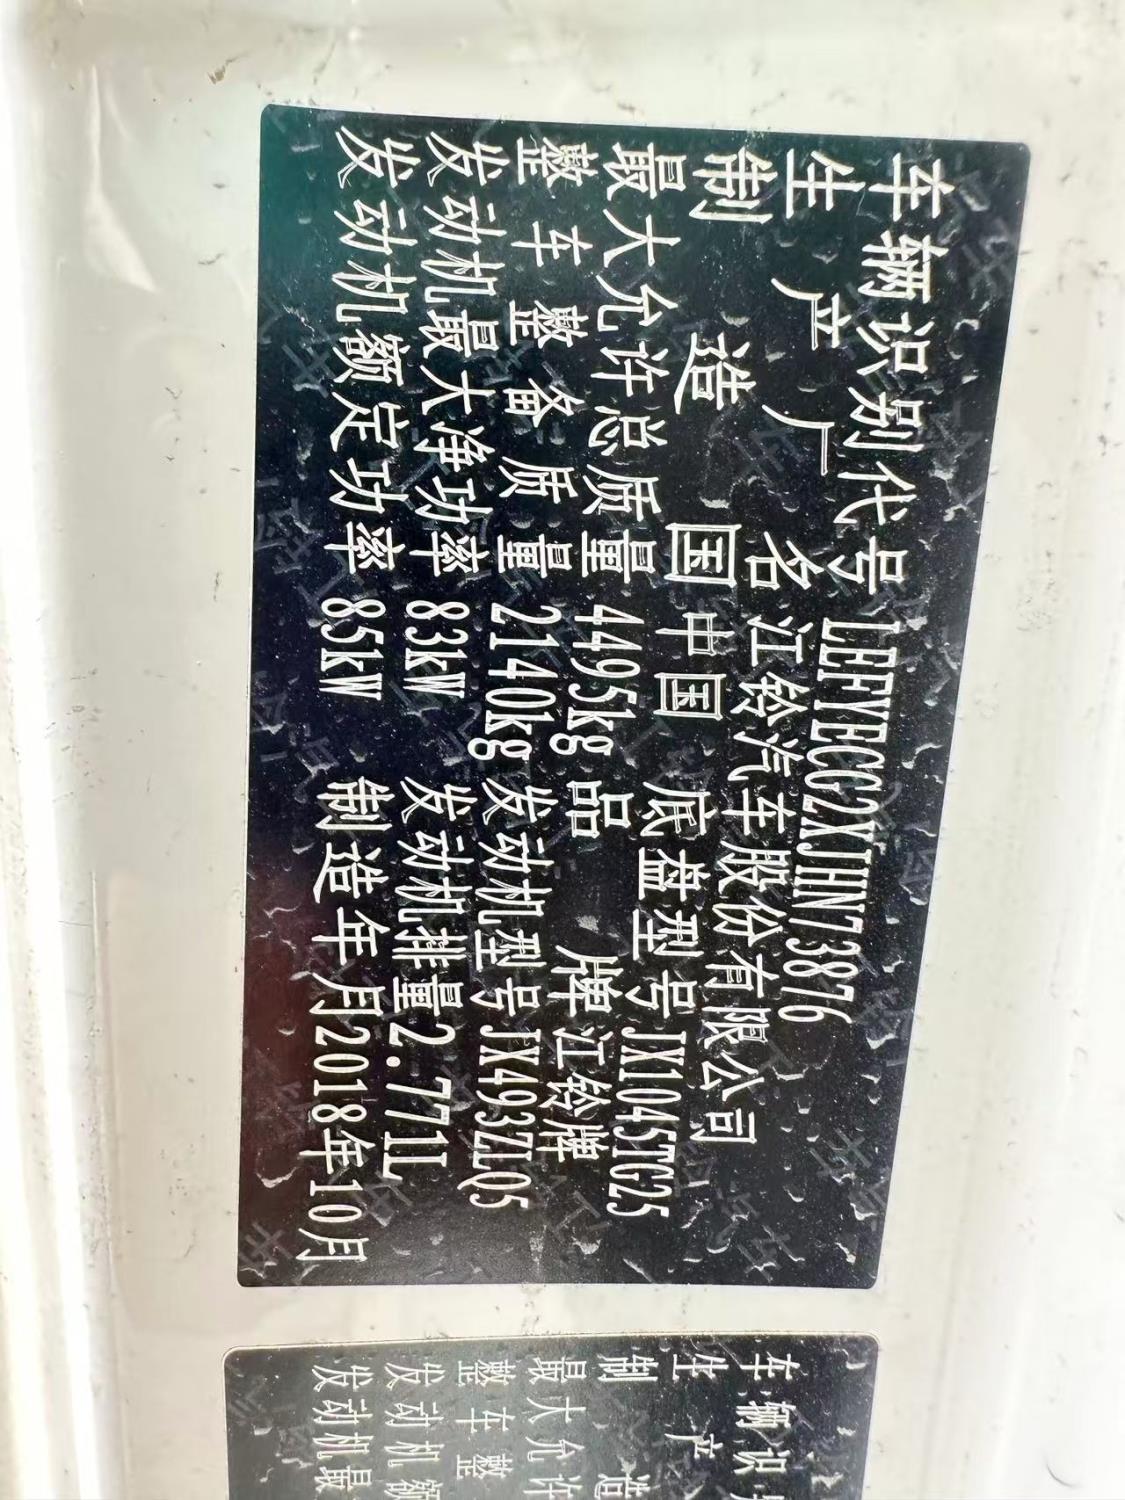 车辆识别代号LEFYECG2XJHN73876
生产厂名江铃汽车股份有限公司
制造国中国 底盘型号JX1045TG25
最大允许总质量4495kg 品牌江铃牌
整车整备质量2140kg发动机型号JX493ZLQ5
发动机最大净功率83kW 发动机排量2.771L
发动机额定功率85kW 制造年月2018年10月
车辆识
生产
制造
最大允许
整车整
发动机额
发动机最